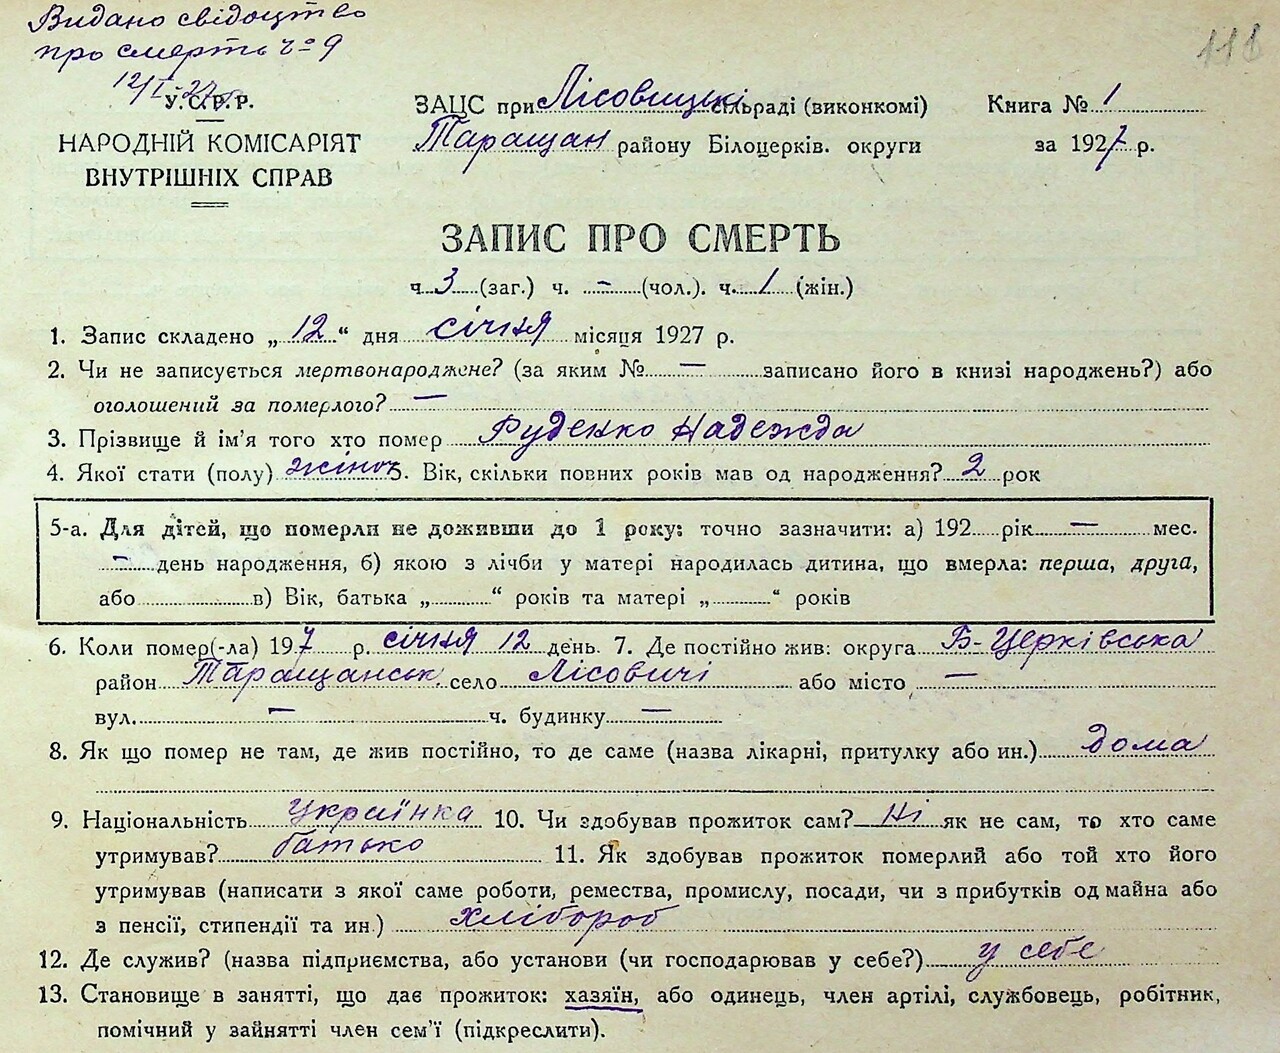 Видано свідоцтво
про смерть ч= 9
12/I-27 р.
111
У.С.Р.Р.
НАРОДНІЙ КОМІСАРІЯТ
ВНУТРІШНІХ СПРАВ
ЗАЦС при Лісовицькі сільраді (виконкомі)
Таращан району Білоцерків. округи
Книга № 1
за 1927 р.
ЗАПИС ПРО СМЕРТЬ
ч. 3 (заг.) ч. - (чол.). ч. 1 (жін.)
1. Запис складено „12“ дня січня місяця 1927 р.
2. Чи не записується мертвонароджене? (за яким № — записано його в книзі народжень?) або
оголошений за померлого? —
3. Прізвище й ім'я того хто помер Руденко Надежда
4. Якої стати (полу) жіноч 5. Вік, скільки повних років мав од народження? 2 рок
5-а. Для дітей, що померли не доживши до 1 року: точно зазначити: а) 192 рік — мес.
— день народження, б) якою з лічби у матері народилась дитина, що вмерла: перша, друга,
або в) Вік, батька „ “ років та матері „ “ років
6. Коли помер(-ла) 197 р. січня 12 день. 7. Де постійно жив: округа Б-Церківська
район Таращанськ. село Лісовичі або місто —
вул. — ч. будинку —
8. Як що помер не там, де жив постійно, то де саме (назва лікарні, притулку або ин.) дома
9. Національність Українка 10. Чи здобував прожиток сам? Ні як не сам, то хто саме
утримував? батько 11. Як здобував прожиток померлий або той хто його
утримував (написати з якої саме роботи, ремества, промислу, посади, чи з прибутків од майна або
з пенсії, стипендії та ин.) хлібороб
12. Де служив? (назва підприємства, або установи (чи господарював у себе?) у себе
13. Становище в занятті, що дає прожиток: хазяїн, або одинець, член артілі, службовець, робітник,
помічний у зайнятті член сем'ї (підкреслити).